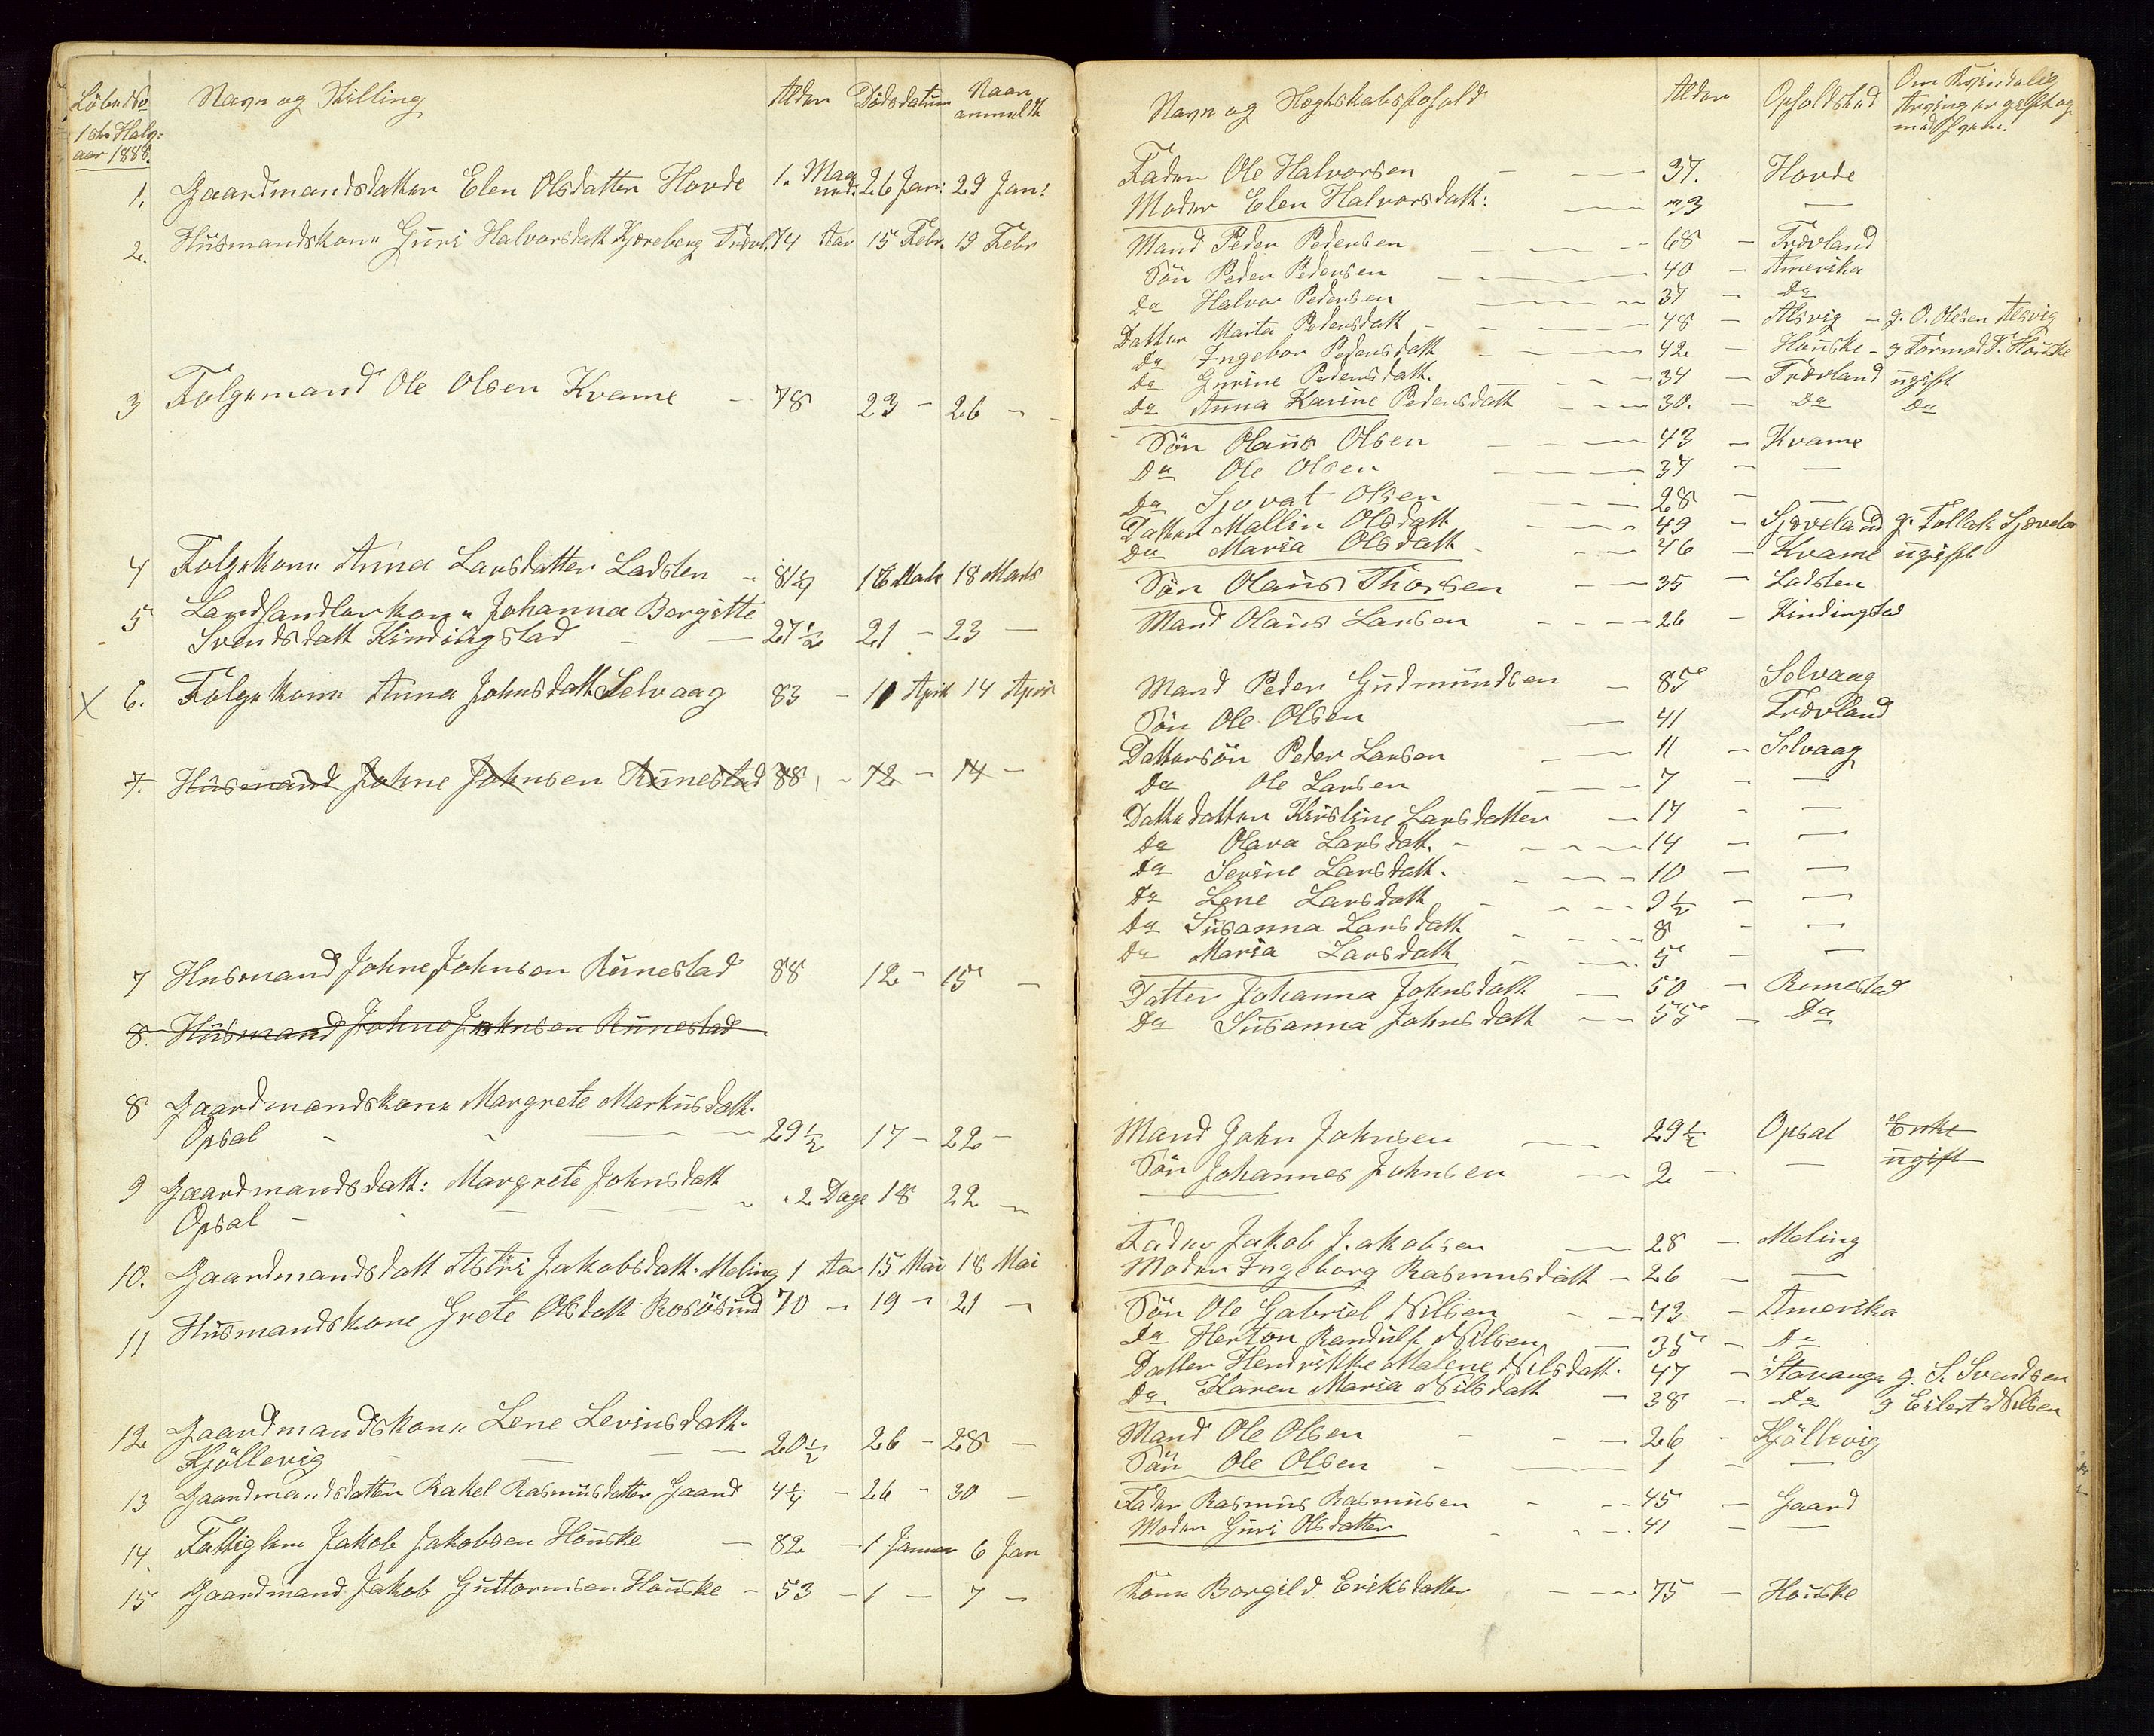 Löbe No
1ste Halv-
aar 1888.
Navn og Stilling
Alder
Dödsdatum
Naar
anmeldt
1. Gaardmandsdatter Elen Olsdatter Hovde 1. Maaned: 26 Jan: 29 Jan:
2. Husmandskone Guri Halvorsdatt Kjæreberg Trævl. 74 Aar 15 Febr. 19 Febr
3 Folgemand Ole Olsen Kvame - 78 23 - 26 -
4 Folgekone Anna Larsdatter Ladsten - 81¼ 16 Marts 18 Marts
5 Landhandlerkone Johanna Borgitte
Svendsdatt Kindingstad - 27½ 21 - 23 -
X 6. Folgekone Anna Johnsdatt Selvaag 83 - 11 April 14 April
7. Husmand Johne Johnsen Runestad 88 - 12 - 14 -
7 Husmand Johne Johnsen Runestad 88 12 - 15 -
8. Husmand Johne Johnsen Runestad
8 Gaardmandskone Margrete Markusdatt.
Opsal - 29½ 17 - 22 -
9 Gaardmandsdatt: Margrete Johnsdatt
Opsal - 2 Dage 18 22 -
10. Gaardmandsdatt Astri Jakobsdatt. Meling 1 Aar 15 Mai 18 Mai
11 Husmandskone Grete Olsdatt Rosösund 70 - 19 - 21 -
12 Gaardmandskone Lene Levinsdatt.
Kjöllevig - 20½ 26 - 28 -
13 Gaardmandsdatter Rakel Rasmusdatter Gaard 4¼ - 26 - 30 -
14. Fattiglem Jakob Jakobsen Houske - 82 - 1 Januar 6 Jan
15 Gaardmand Jakob Guttormsen Houske - 53 - 1 - 7 -
Navn og Slegtskabsforhold
Alder
Opholdsted
Om Kvindelig
Arving er gift og
med hvem.
Fader Ole Halvorsen - 37. Hovde
Moder Elen Halvorsdatt: - 33 -
Mand Peder Pedersen - 68 - Trævland
Sön Peder Pedersen - 40 - Amerika
Do Halvor Pedersen - 37 - Do
Datter Marta Pedersdatt - 48 - Alsvig - g. O. Olsen Alsvig
Do Ingebor Pedersdatt - 42 - Houske - g Tormod T. Houske
Do Gurine Pedersdatt. - 34 - Trævland ugift
Do Anna Karine Pedersdatt - 30. - Do Do
Sön Olaus Olsen - 43 - Kvame
Do Ole Olsen - 37 - -
Do Sjovat Olsen - 28 - -
Datter Mallin Olsdatt - 49 - Sjæveland g. Tollak Sjævela
Do Maria Olsdatt - 46 - Kvame ugift
Sön Olaus Thorsen - 35 - Ladsten
Mand Olaus Larsen - 26 - Kindingstad
Mand Peder Gudmundsen - 85 Selvaag
Sön Ole Olsen - 41 Trævland
Dattersön Peder Larsen - 11 - Selvaag
Do Ole Larsen - 7 - -
Datterdatter Kirstine Larsdatter - 17 - -
Do Olava Larsdatt. - 14 - -
Do Serine Larsdatt. - 10 - -
Do Lene Larsdatt - 9½ - -
Do Susanna Larsdatt - 8 - -
Do Maria Larsdatt - 5 - -
Datter Johanna Johnsdatt - 50 - Runestad
Do Susanna Johnsdatt - 55 - Do
Mand John Johnsen - 29½ Opsal Enke
Sön Johannes Johnsen - 2 - - ugift
Fader Jakob Jakobsen - 28 - Meling
Moder Ingeborg Rasmusdatt - 26 - -
Sön Ole Gabriel Nilsen - 43 - Amerika
Do Herton Randulf Nilsen - 35 - Do
Datter Hendrikke Malene Nilsdatt. 47 - Stavanger g. S. Svendsen
Do Karen Maria Nilsdatt - 38 - Do g Eilert Nilsen
Mand Ole Olsen - 26 - Kjöllevig
Sön Ole Olsen - 1 - -
Fader Rasmus Rasmusen - 45 - Gaard
Moder Guri Olsdatter - 41 - -
Kone Borgild Eriksdatter - 75 - Houske